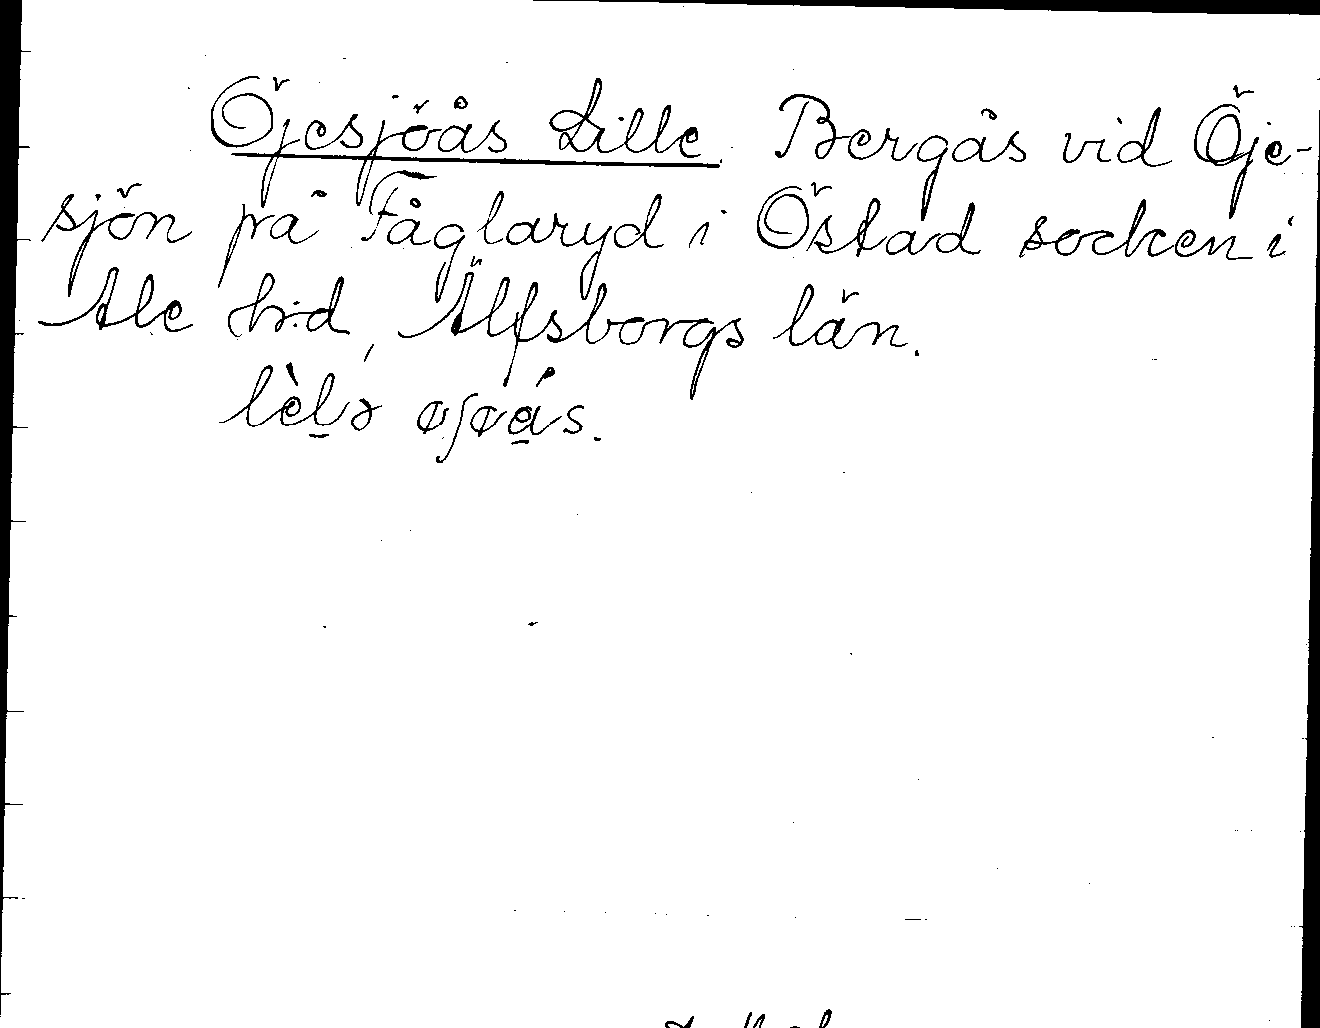 Öjesjöås Lille. Bergås vid Öje-
sjön på Fåglaryd i Östad socken i
Ale h:d, Älfsborgs län.